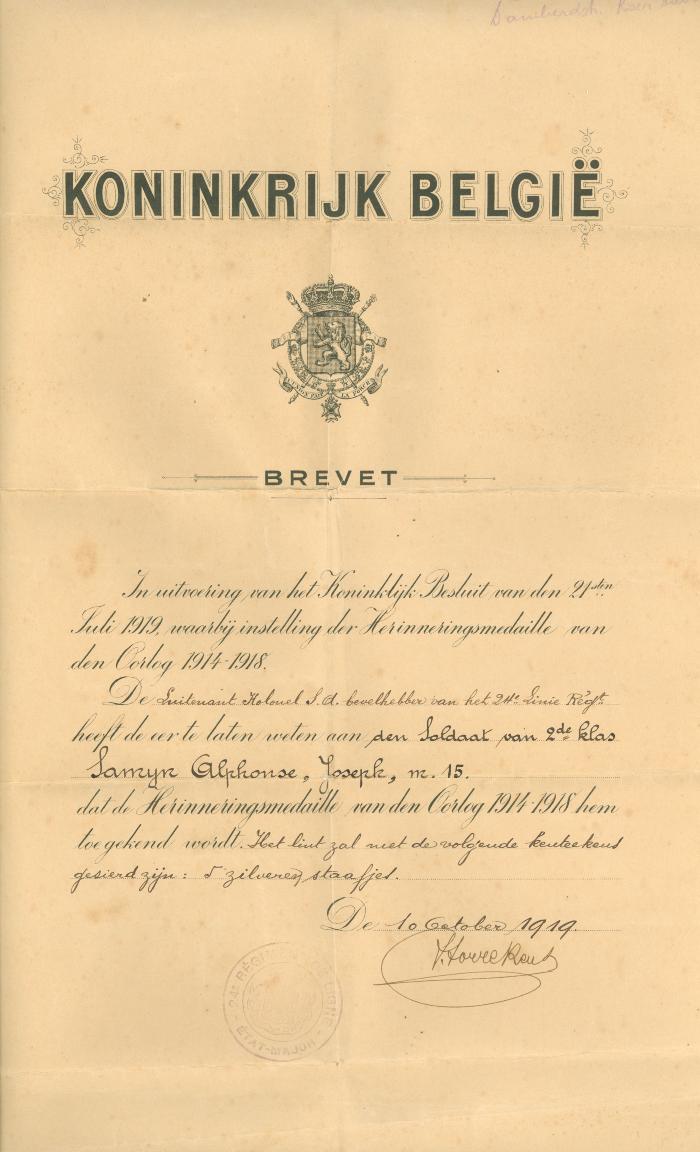 KONINKRIJK BELGIË
L'UNION FAIT LA FORCE
BREVET
In uitvoering van het Koninklijk Besluit van den 21sten
Juli 1919, waarbij instelling der Herinneringsmedaille van
den Oorlog 1914-1918.
De Luitenant Kolonel S. d. bevelhebber van het 24e Linie Regt
heeft de eer te laten weten aan den Soldaat van 2de klas
Samyn Alphonse, Joseph, m. 15.
dat de Herinneringsmedaille van den Oorlog 1914-1918 hem
toegekend wordt. Het lint zal met de volgende kenteekens
gesierd zijn: 5 zilveren staafjes.
De 10 October 1919.
24e RÉGIMENT DE LIGNE
ÉTAT-MAJOR